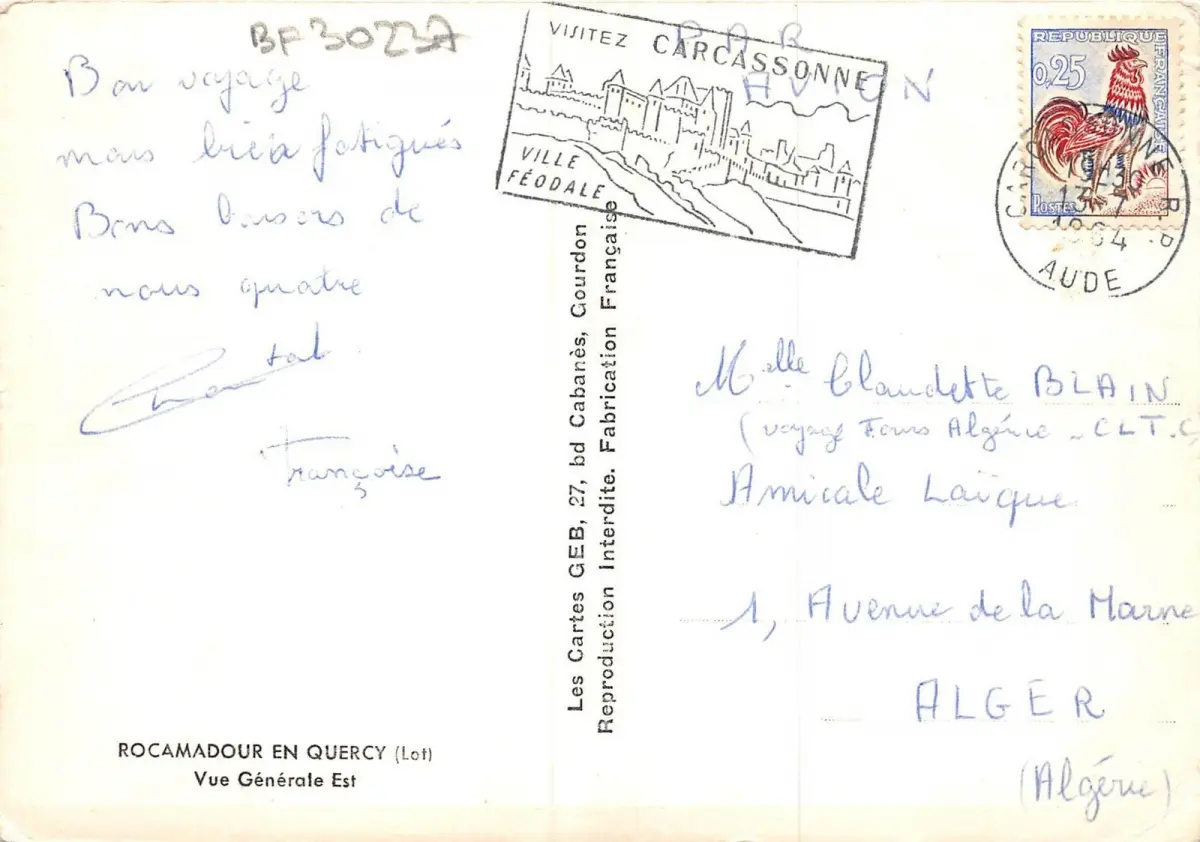 BF3023A
Bon voyage
mais bien fatigués
Bons baisers de
nous quatre
Chantal
Françoise
ROCAMADOUR EN QUERCY (Lot)
Vue Générale Est
VISITEZ CARCASSONNE
VILLE
FÉODALE
Les Cartes GEB, 27, bd Cabanès, Gourdon
Reproduction Interdite. Fabrication Française
PAR
AVION
REPUBLIQUE FRANÇAISE
0,25
POSTES
CARCASSONNE R.P
13
1964
AUDE
Melle Claudette BLAIN
(voyage Fours Algérie - CLT.C
Amicale Laïque
1, Avenue de la Marne
ALGER
(Algérie)